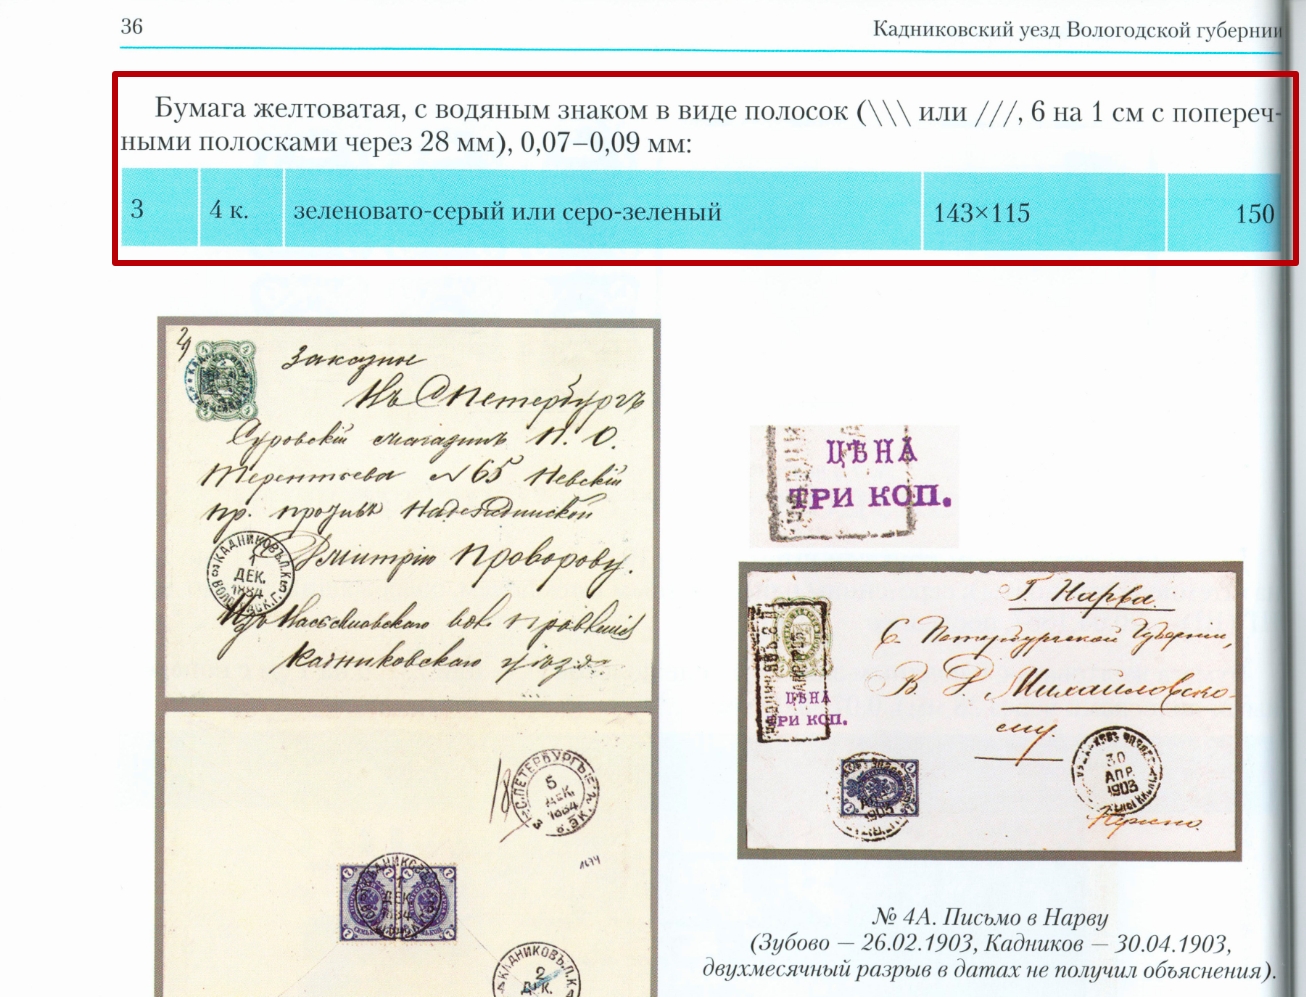 36
Кадниковский уезд Вологодской губернии
Бумага желтоватая, с водяным знаком в виде полосок (\\\ или ///, 6 на 1 см с попереч-
ными полосками через 28 мм), 0,07–0,09 мм:
3 4 к. зеленовато-серый или серо-зеленый 143×115 150
Заказное
Въ С Петербургъ
Суровскій магазинъ П. О.
Терентьева № 65 Невскій
пр. противъ Надеждинской
Дмитрію Проворову.
КАДНИКОВЪ
1
ДЕК.
1884
Кадниковскаго уѣзда
С.ПЕТЕРБУРГЪ
5
ДЕК.
1884
КАДНИКОВЪ
2
ДЕК.
ЦѢНА
ТРИ КОП.
Г. Нарва.
С. Петербургской Губерніи,
В. Р. Михайловско-
му.
ЦѢНА
ТРИ КОП.
30
АПР.
1903
№ 4А. Письмо в Нарву
(Зубово — 26.02.1903, Кадников — 30.04.1903,
двухмесячный разрыв в датах не получил объяснения).